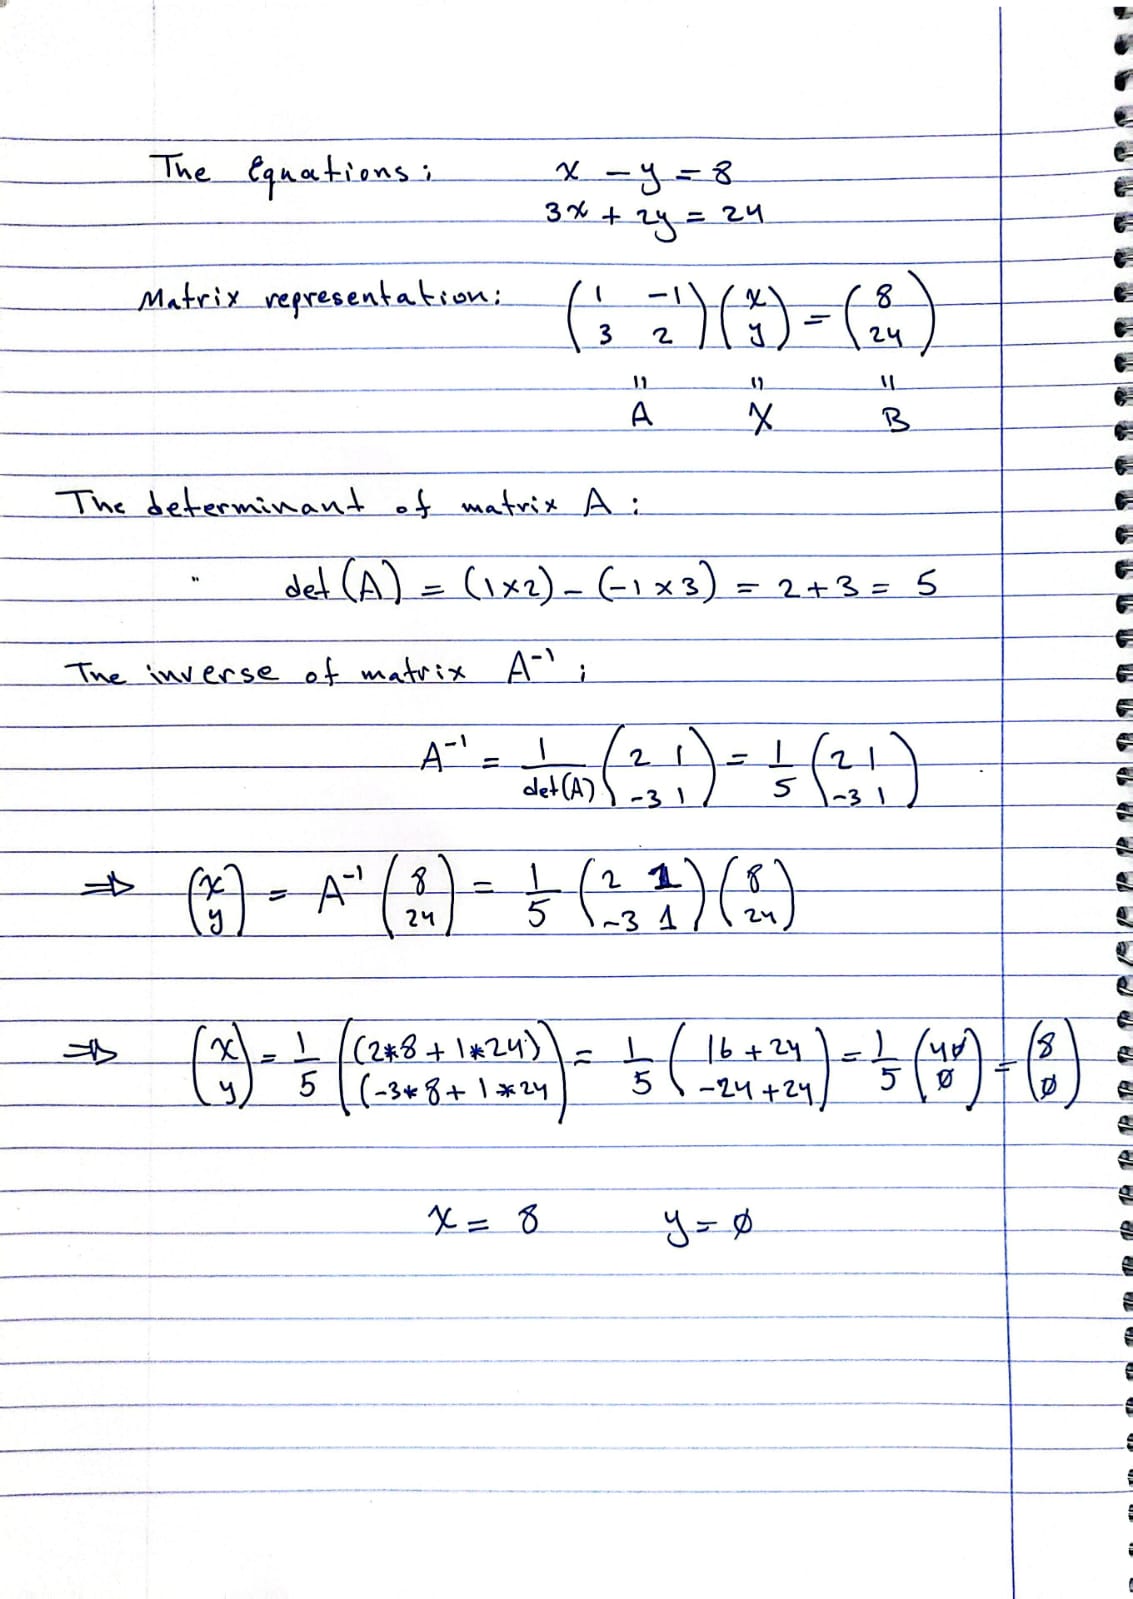 The Equations: x - y = 8
3x + 2y = 24
Matrix representation: ( 1 -1 ; 3 2 ) ( x ; y ) = ( 8 ; 24 )
" " "
A X B
The determinant of matrix A :
det (A) = (1×2) - (-1×3) = 2+3 = 5
The inverse of matrix A⁻¹ :
A⁻¹ = 1/det(A) ( 2 1 ; -3 1 ) = 1/5 ( 2 1 ; -3 1 )
⇒ ( x ; y ) = A⁻¹ ( 8 ; 24 ) = 1/5 ( 2 1 ; -3 1 ) ( 8 ; 24 )
⇒ ( x ; y ) = 1/5 ( (2*8 + 1*24) ; (-3*8 + 1*24 ) = 1/5 ( 16 + 24 ; -24 + 24 ) = 1/5 ( 4∅ ; ∅ ) = ( 8 ; ∅ )
x = 8 y = ∅